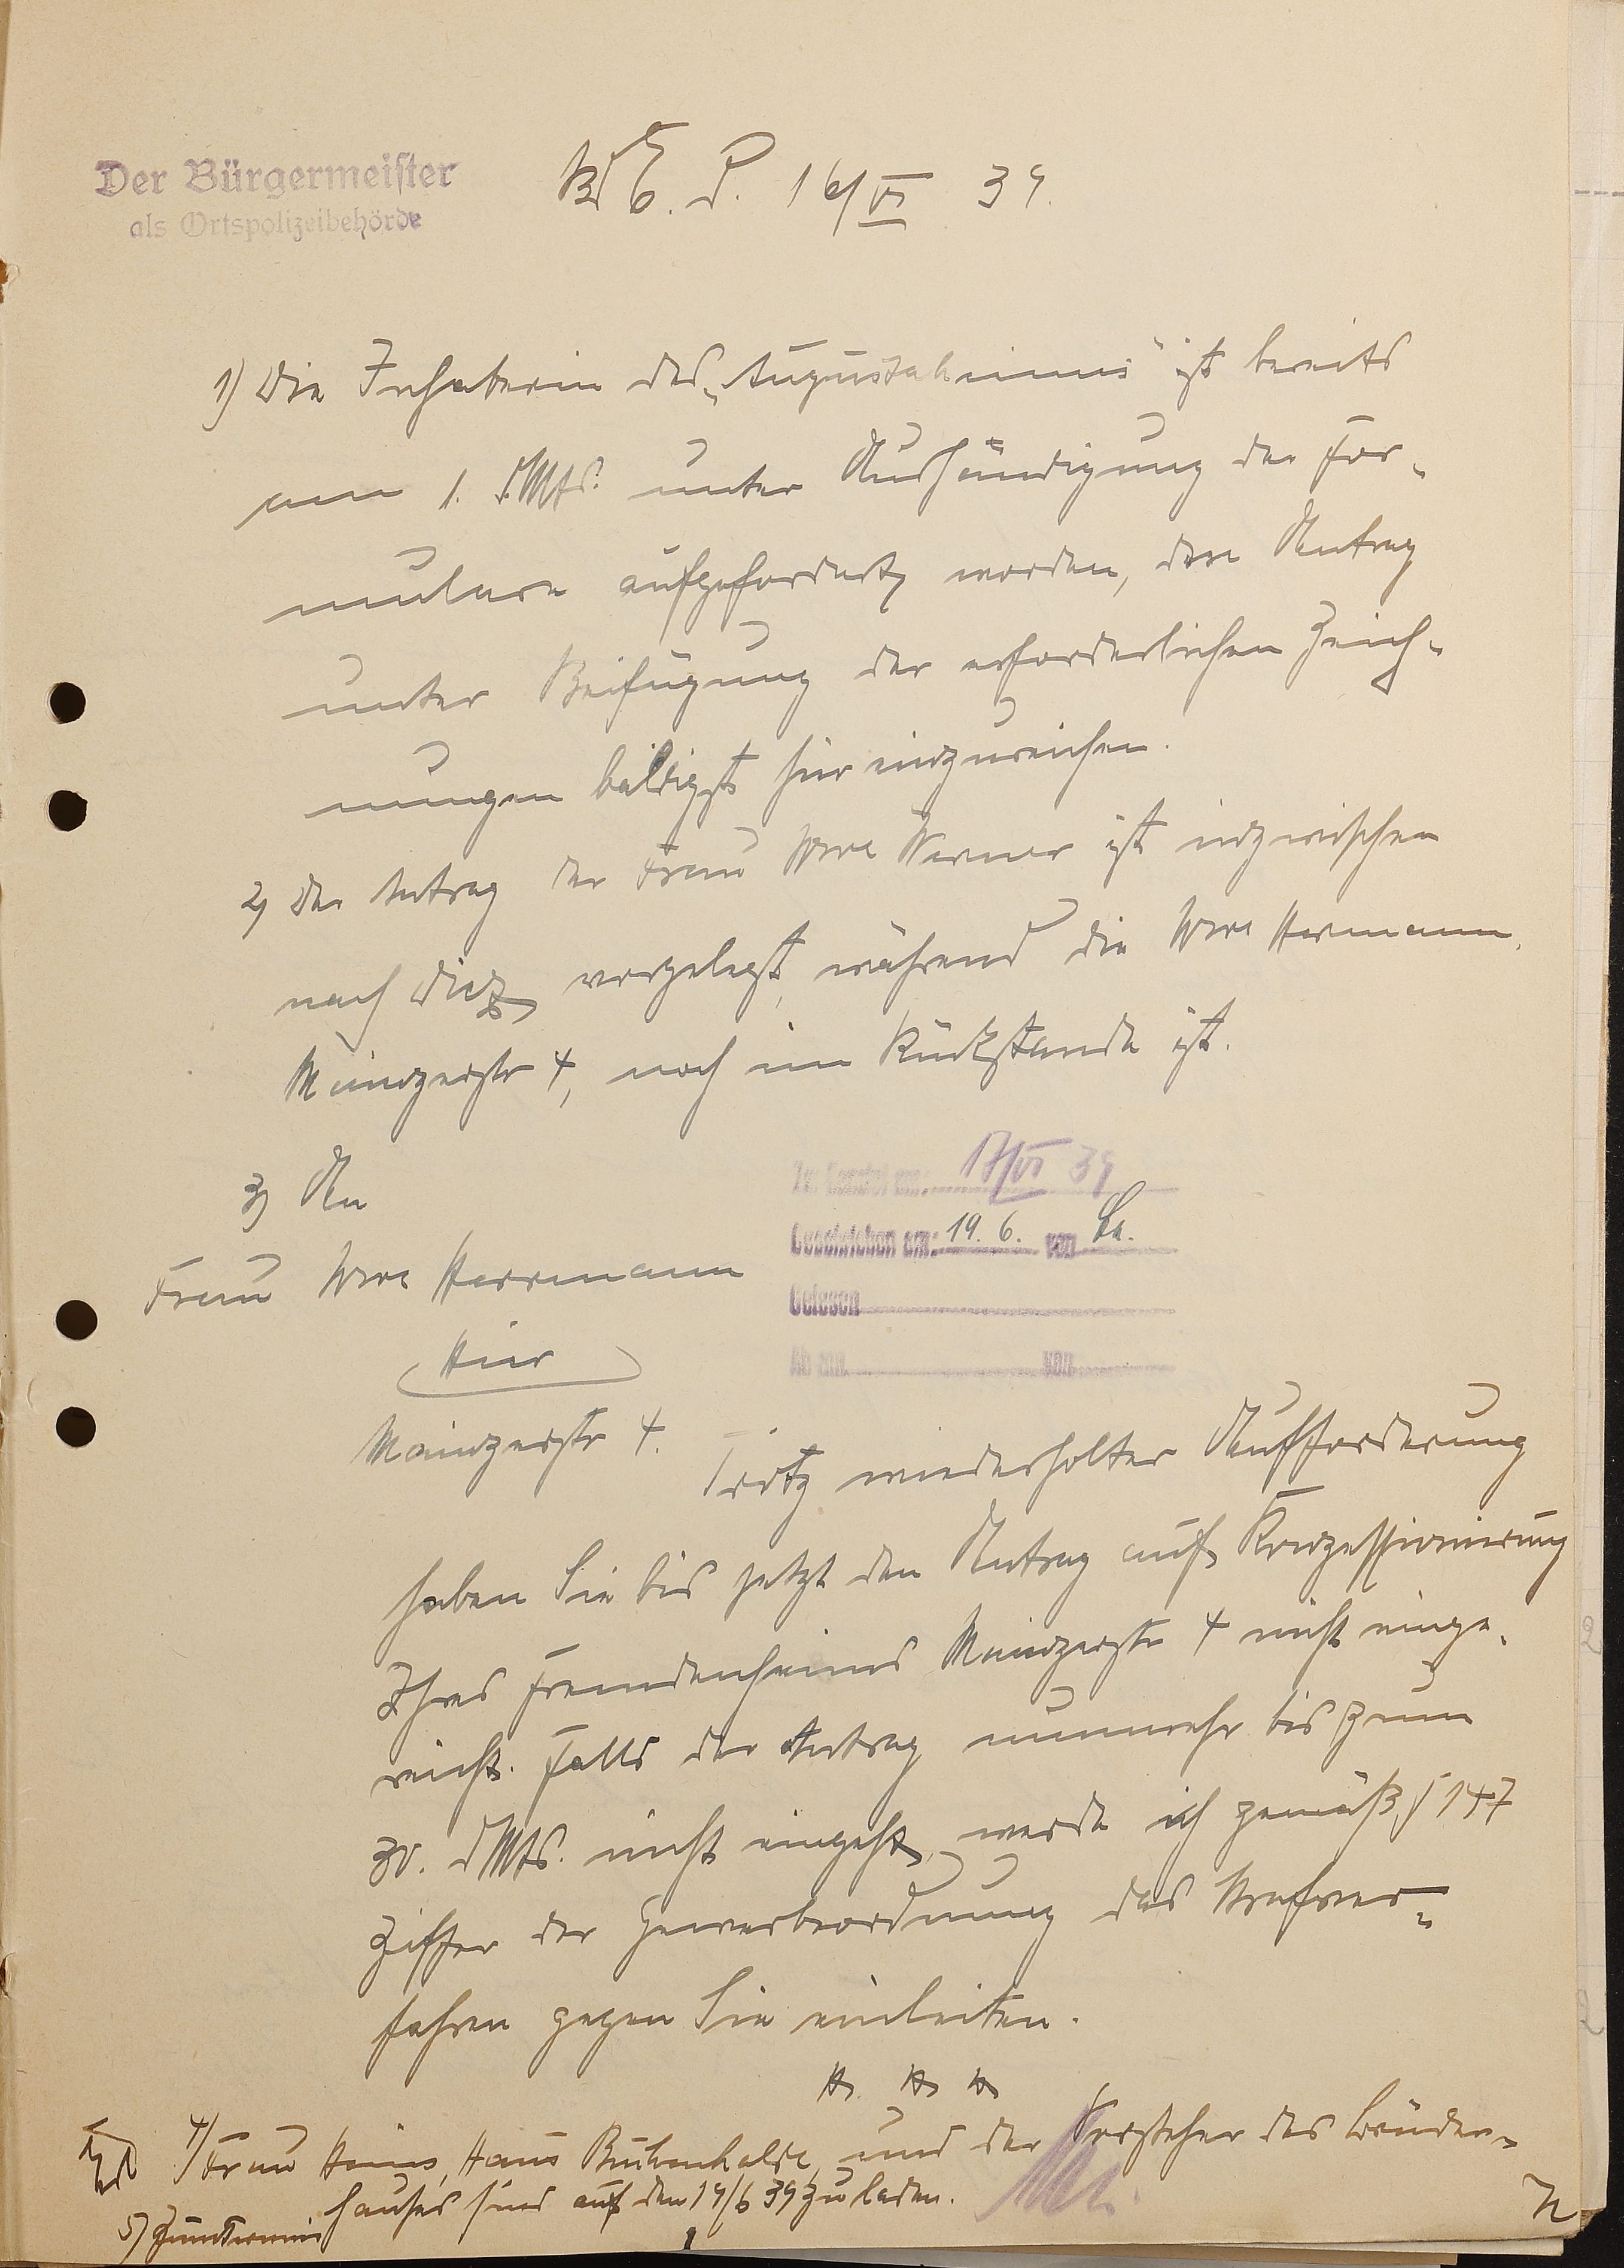 Der Bürgermeister
als Ortspolizeibehörde
B. E. d. 16/VI 39.
1) Die Inhaberin des „Augustaheims" ist bereits
am 1. d. Mts. unter Aushändigung der For-
mulare aufgefordert worden, den Antrag
unter Beifügung der erforderlichen Zeich-
nungen baldigst hier einzureichen.
2) Der Antrag der Frau Wwe Werner ist inzwischen
nach Diez vorgelegt, während die Wwe Hermann,
Mainzerstr 4, noch im Rückstande ist.
3) An
Frau Wwe Herrmann
Hier
Mainzerstr 4.
Zur Kanzlei am: 17/VI 39
Geschrieben am: 19. 6. von La.
Gelesen
Ab am von
Trotz wiederholter Aufforderung
haben Sie bis jetzt den Antrag auf Konzessionierung
Ihres Fremdenheims Mainzerstr 4 nicht einge-
reicht. Falls der Antrag nunmehr bis zum
30. d Mts. nicht eingeht, werde ich gemäß § 147
Ziffer der Gewerbeordnung das Strafver-
fahren gegen Sie einleiten.
4) Frau Heims, Haus Buchenhalde, und der Vorsteher des Brüder-
hauses sind auf den 19/6 39 zu laden.
5) Zum Termin